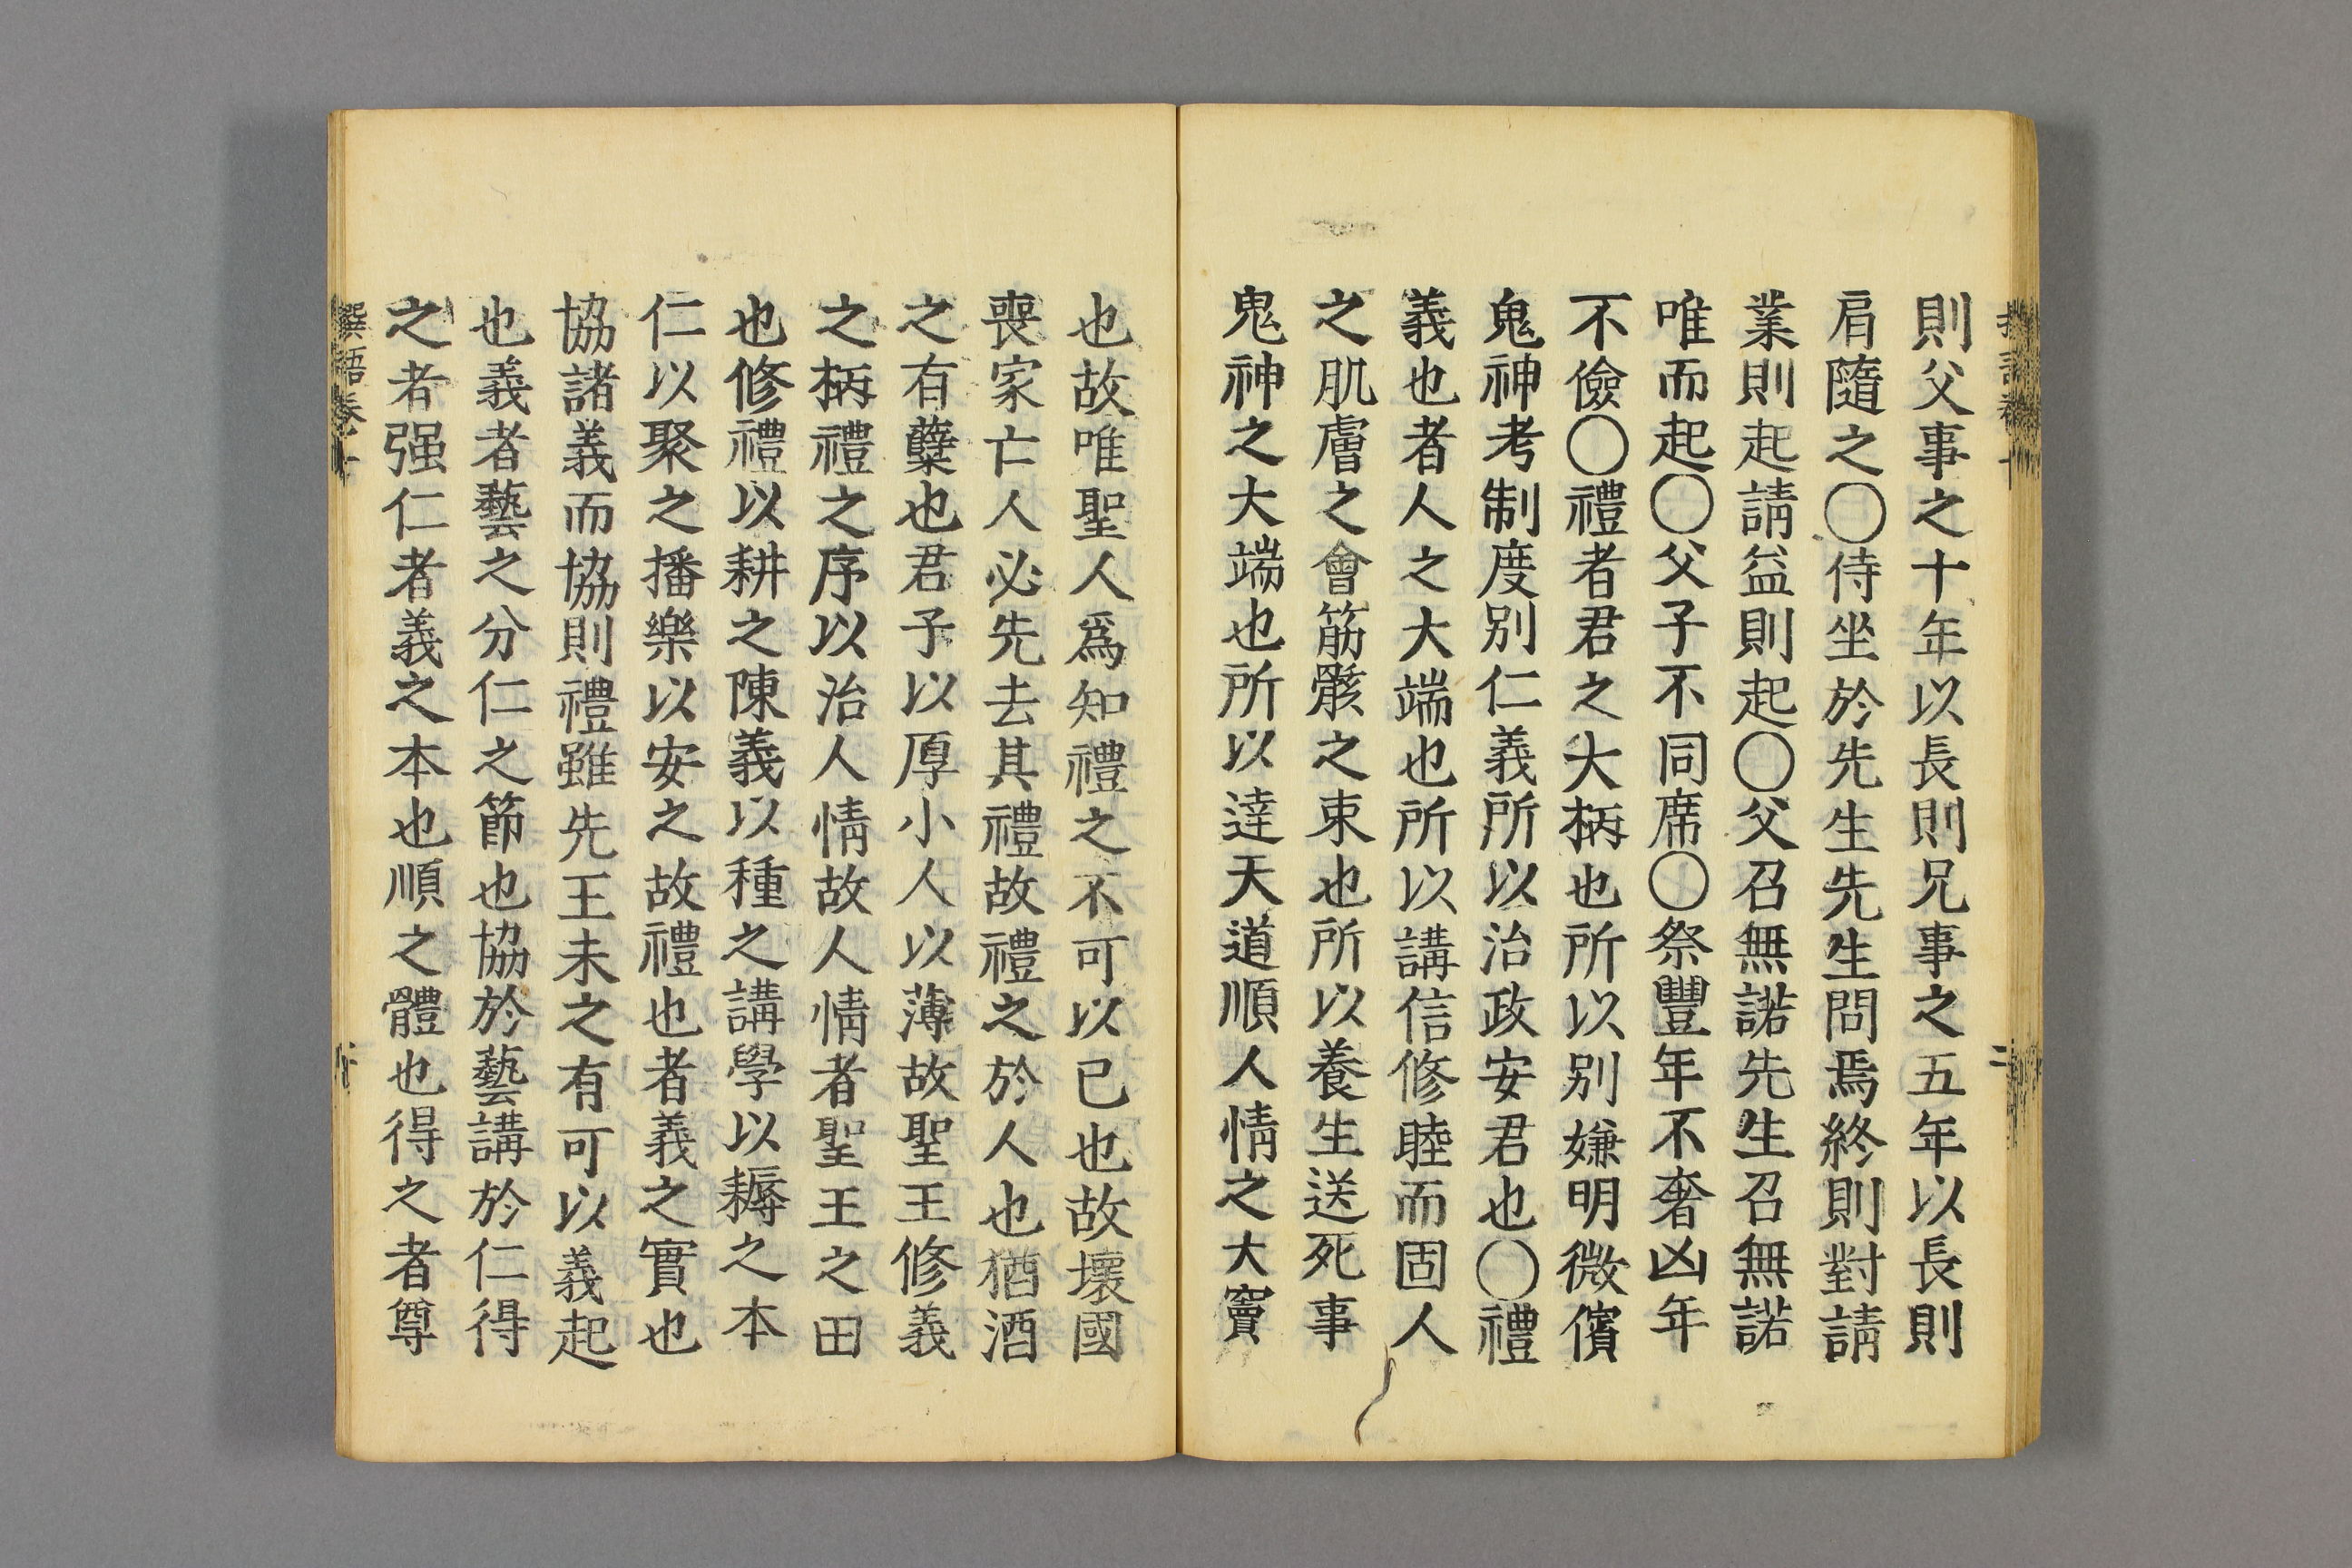 則父事之十年以長則兄事之五年以長則
肩隨之〇侍坐於先生先生問焉終則對請
業則起請益則起〇父召無諾先生召無諾
唯而起〇父子不同席〇祭豐年不奢凶年
不儉〇禮者君之大柄也所以別嫌明微儐
鬼神考制度別仁義所以治政安君也〇禮
義也者人之大端也所以講信修睦而固人
之肌膚之會筋骸之束也所以養生送死事
鬼神之大端也所以達天道順人情之大竇
也故唯聖人爲知禮之不可以已也故壞國
喪家亡人必先去其禮故禮之於人也猶酒
之有蘗也君子以厚小人以薄故聖王修義
之柄禮之序以治人情故人情者聖王之田
也修禮以耕之陳義以種之講學以耨之本
仁以聚之播樂以安之故禮也者義之實也
協諸義而協則禮雖先王未之有可以義起
也義者藝之分仁之節也協於藝講於仁得
之者强仁者義之本也順之體也得之者尊
撰語卷十